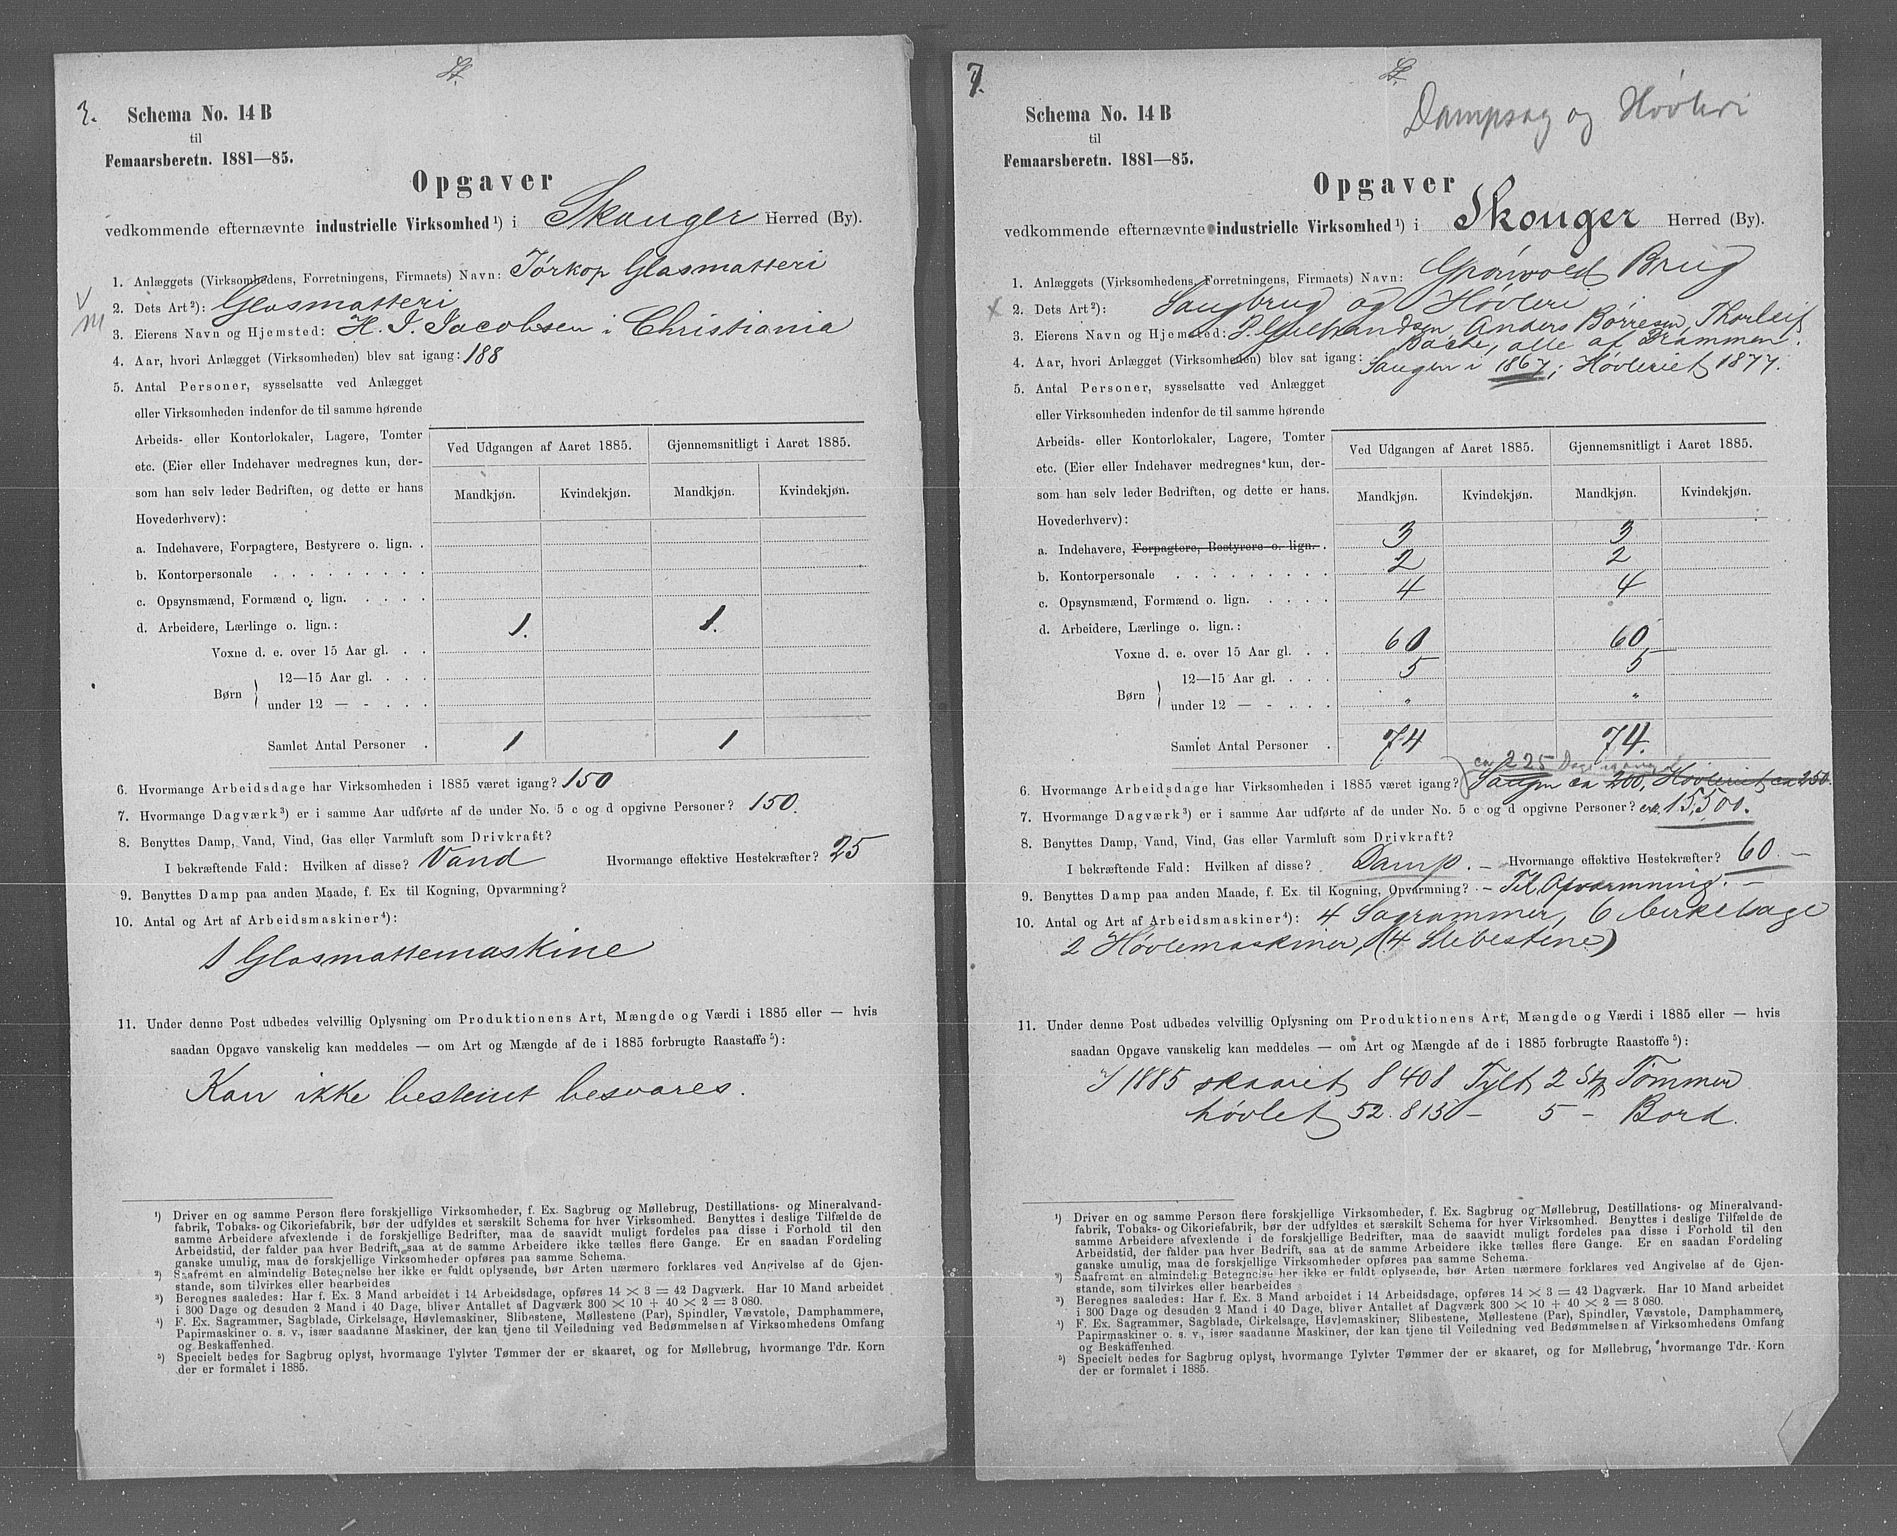 3.
Schema No. 14 B
til
Femaarsberetn. 1881—85.
Opgaver
vedkommende efternævnte industrielle Virksomhed¹) i Skouger Herred (By).
1. Anlæggets (Virksomhedens, Forretningens, Firmaets) Navn: Tørkop Glasmatteri
2. Dets Art²): Glasmatteri
3. Eierens Navn og Hjemsted: H. J. Jacobsen i Christiania
4. Aar, hvori Anlægget (Virksomheden) blev sat igang: 188
5. Antal Personer, sysselsatte ved Anlægget
eller Virksomheden indenfor de til samme hørende
Arbeids- eller Kontorlokaler, Lagere, Tomter
etc. (Eier eller Indehaver medregnes kun, der-
som han selv leder Bedriften, og dette er hans
Hovederhverv):
Ved Udgangen af Aaret 1885. Gjennemsnitligt i Aaret 1885.
Mandkjøn. Kvindekjøn. Mandkjøn. Kvindekjøn.
a. Indehavere, Forpagtere, Bestyrere o. lign. .
b. Kontorpersonale . . . . . . . . .
c. Opsynsmænd, Formænd o. lign. . . . .
d. Arbeidere, Lærlinge o. lign.: 1. 1.
Voxne d. e. over 15 Aar gl. . .
Børn 12—15 Aar gl. . . .
under 12 — - . . .
Samlet Antal Personer . 1 1
6. Hvormange Arbeidsdage har Virksomheden i 1885 været igang? 150
7. Hvormange Dagværk³) er i samme Aar udførte af de under No. 5 c og d opgivne Personer? 150.
8. Benyttes Damp, Vand, Vind, Gas eller Varmluft som Drivkraft?
I bekræftende Fald: Hvilken af disse? Vand Hvormange effektive Hestekræfter? 25
9. Benyttes Damp paa anden Maade, f. Ex. til Kogning, Opvarmning?
10. Antal og Art af Arbeidsmaskiner⁴):
1 Glasmattemaskine
11. Under denne Post udbedes velvillig Oplysning om Produktionens Art, Mængde og Værdi i 1885 eller — hvis
saadan Opgave vanskelig kan meddeles — om Art og Mængde af de i 1885 forbrugte Raastoffe⁵):
Kan ikke bestemt besvares.
¹) Driver en og samme Person flere forskjellige Virksomheder, f. Ex. Sagbrug og Møllebrug, Destillations- og Mineralvand-
fabrik, Tobaks- og Cikoriefabrik, bør der udfyldes et særskilt Schema for hver Virksomhed. Benyttes i deslige Tilfælde de
samme Arbeidere afvexlende i de forskjellige Bedrifter, maa de saavidt muligt fordeles paa disse i Forhold til den
Arbeidstid, der falder paa hver Bedrift, saa at de samme Arbeidere ikke tælles flere Gange. Er en saadan Fordeling
ganske umulig, maa de forskjellige Virksomheder opføres paa samme Schema.
²) Saafremt en almindelig Betegnelse her ikke er fuldt oplysende, bør Arten nærmere forklares ved Angivelse af de Gjen-
stande, som tilvirkes eller bearbeides
³) Beregnes saaledes: Har f. Ex. 3 Mand arbeidet i 14 Arbeidsdage, opføres 14 × 3 = 42 Dagværk. Har 10 Mand arbeidet
i 300 Dage og desuden 2 Mand i 40 Dage, bliver Antallet af Dagværk 300 × 10 + 40 × 2 = 3 080.
⁴) F. Ex. Sagrammer, Sagblade, Cirkelsage, Høvlemaskiner, Slibestene, Møllestene (Par), Spindler, Vævstole, Damphammere,
Papirmaskiner o. s. v., især saadanne Maskiner, der kan tjene til Veiledning ved Bedømmelsen af Virksomhedens Omfang
og Beskaffenhed.
⁵) Specielt bedes for Sagbrug oplyst, hvormange Tylvter Tømmer der er skaaret, og for Møllebrug, hvormange Tdr. Korn
der er formalet i 1885.
7.
Dampsag og Høvleri
Schema No. 14 B
til
Femaarsberetn. 1881—85.
Opgaver
vedkommende efternævnte industrielle Virksomhed¹) i Skouger Herred (By).
1. Anlæggets (Virksomhedens, Forretningens, Firmaets) Navn: Grønvold Brug
2. Dets Art²): Saugbrug og Høvleri
3. Eierens Navn og Hjemsted: P. Gulbrandsen, Anders Børresen, Thorleif
Bache, alle af Drammen.
4. Aar, hvori Anlægget (Virksomheden) blev sat igang: Saugen i 1867; Høvleriet 1877.
5. Antal Personer, sysselsatte ved Anlægget
eller Virksomheden indenfor de til samme hørende
Arbeids- eller Kontorlokaler, Lagere, Tomter
etc. (Eier eller Indehaver medregnes kun, der-
som han selv leder Bedriften, og dette er hans
Hovederhverv):
Ved Udgangen af Aaret 1885. Gjennemsnitligt i Aaret 1885.
Mandkjøn. Kvindekjøn. Mandkjøn. Kvindekjøn.
a. Indehavere, Forpagtere, Bestyrere o. lign. . 3 3
b. Kontorpersonale . . . . . . . . . 2 2
c. Opsynsmænd, Formænd o. lign. . . . . 4 4
d. Arbeidere, Lærlinge o. lign.:
Voxne d. e. over 15 Aar gl. . . 60 60
Børn 12—15 Aar gl. . . . 5 5
under 12 — - . . . " "
Samlet Antal Personer . 74 74.
ca 225 Dage igang
6. Hvormange Arbeidsdage har Virksomheden i 1885 været igang? Saugen ca 200, Høvleriet ca 250.
7. Hvormange Dagværk³) er i samme Aar udførte af de under No. 5 c og d opgivne Personer? ca. 15,500.
8. Benyttes Damp, Vand, Vind, Gas eller Varmluft som Drivkraft?
I bekræftende Fald: Hvilken af disse? Damp. — Hvormange effektive Hestekræfter? 60. —
9. Benyttes Damp paa anden Maade, f. Ex. til Kogning, Opvarmning? — Til Opvarmning. —
10. Antal og Art af Arbeidsmaskiner⁴): 4 Sagrammer, 6 Cirkelsage
2 Høvlemaskiner, (4 Slibestene)
11. Under denne Post udbedes velvillig Oplysning om Produktionens Art, Mængde og Værdi i 1885 eller — hvis
saadan Opgave vanskelig kan meddeles — om Art og Mængde af de i 1885 forbrugte Raastoffe⁵):
I 1885 skaaret 8408 Tylt 2 Stk Tømmer
høvlet 52.813 — 5 — Bord.
¹) Driver en og samme Person flere forskjellige Virksomheder, f. Ex. Sagbrug og Møllebrug, Destillations- og Mineralvand-
fabrik, Tobaks- og Cikoriefabrik, bør der udfyldes et særskilt Schema for hver Virksomhed. Benyttes i deslige Tilfælde de
samme Arbeidere afvexlende i de forskjellige Bedrifter, maa de saavidt muligt fordeles paa disse i Forhold til den
Arbeidstid, der falder paa hver Bedrift, saa at de samme Arbeidere ikke tælles flere Gange. Er en saadan Fordeling
ganske umulig, maa de forskjellige Virksomheder opføres paa samme Schema.
²) Saafremt en almindelig Betegnelse her ikke er fuldt oplysende, bør Arten nærmere forklares ved Angivelse af de Gjen-
stande, som tilvirkes eller bearbeides
³) Beregnes saaledes: Har f. Ex. 3 Mand arbeidet i 14 Arbeidsdage, opføres 14 × 3 = 42 Dagværk. Har 10 Mand arbeidet
i 300 Dage og desuden 2 Mand i 40 Dage, bliver Antallet af Dagværk 300 × 10 + 40 × 2 = 3 080.
⁴) F. Ex. Sagrammer, Sagblade, Cirkelsage, Høvlemaskiner, Slibestene, Møllestene (Par), Spindler, Vævstole, Damphammere,
Papirmaskiner o. s. v., især saadanne Maskiner, der kan tjene til Veiledning ved Bedømmelsen af Virksomhedens Omfang
og Beskaffenhed.
⁵) Specielt bedes for Sagbrug oplyst, hvormange Tylvter Tømmer der er skaaret, og for Møllebrug, hvormange Tdr. Korn
der er formalet i 1885.